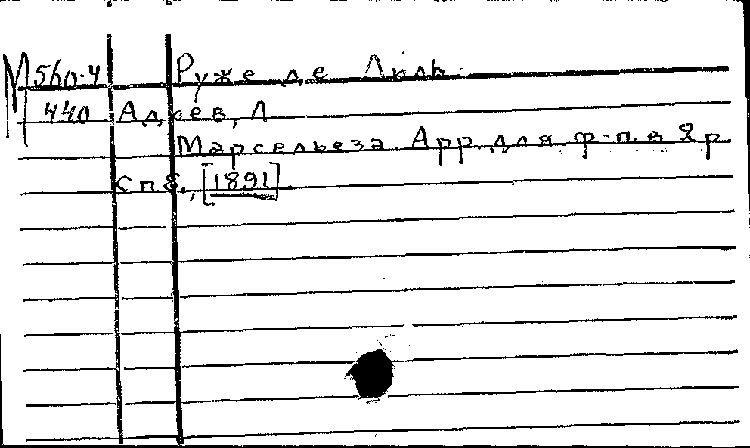 М 560-4 Руже де Лиль.
440 Адлев, Л
Марсельеза Арр. для ф-п. в 2 р
Спб., [1891]